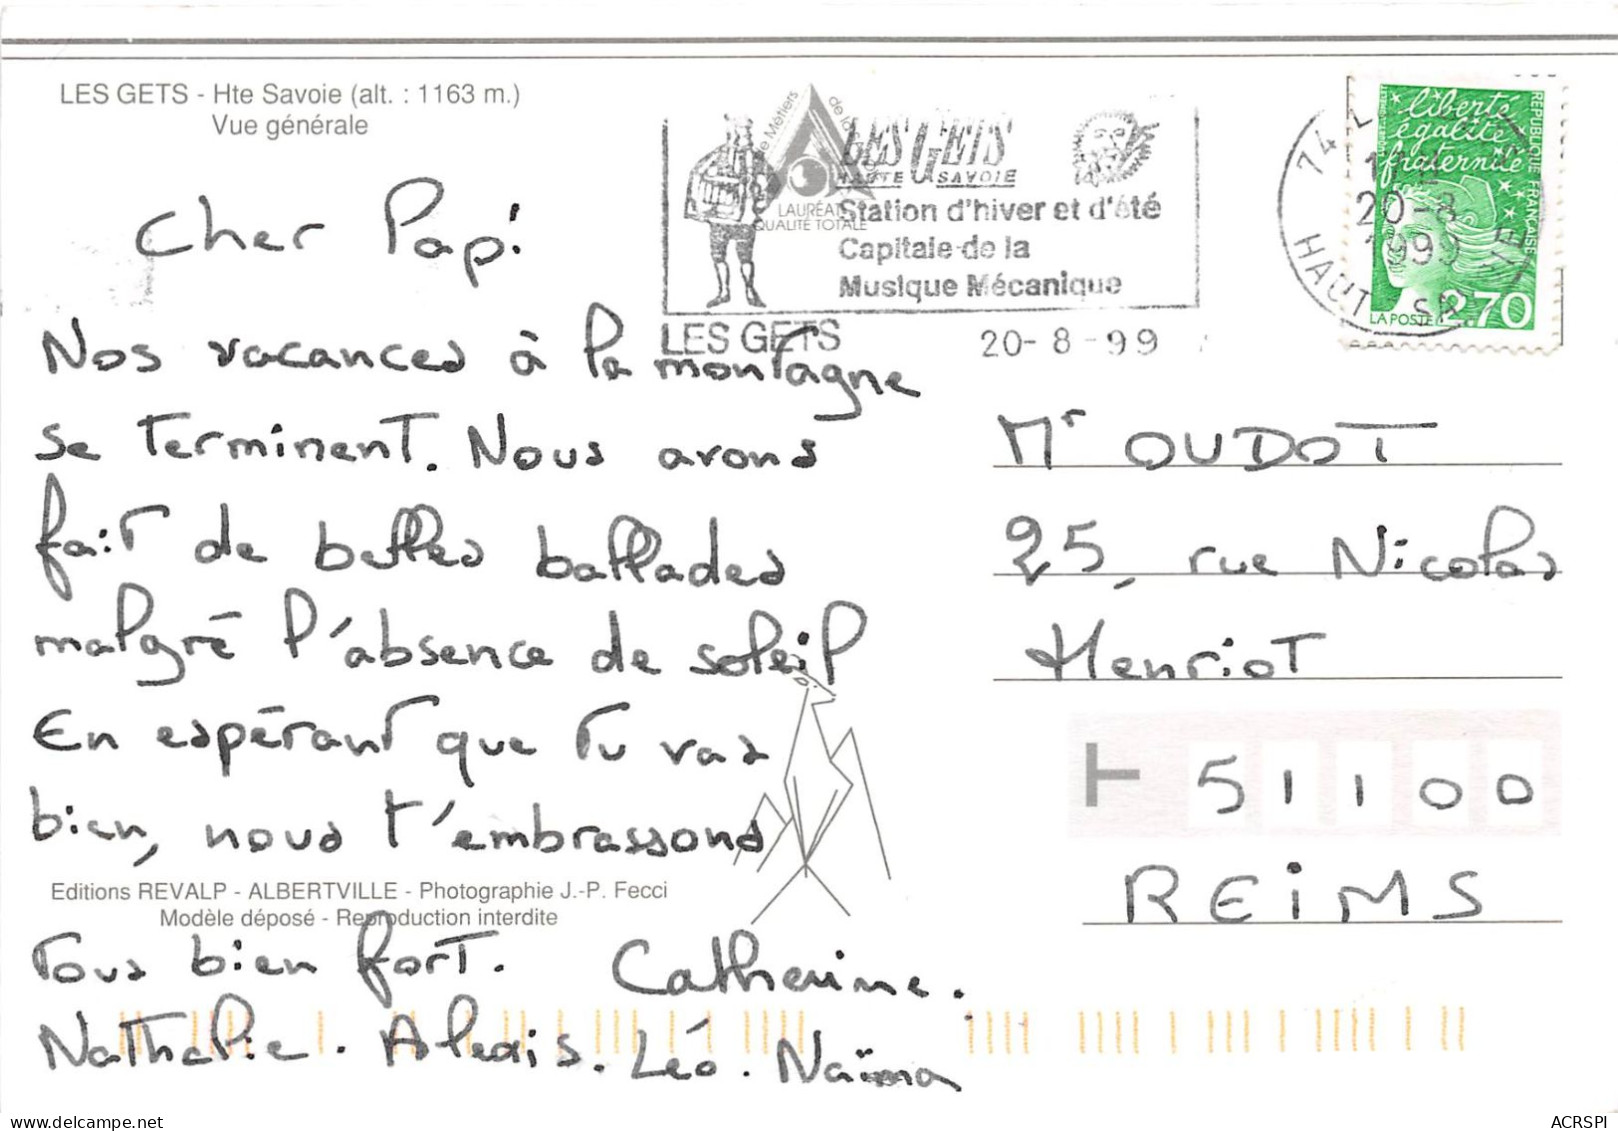 LES GETS - Hte Savoie (alt. : 1163 m.)
Vue générale
LAURÉAT
QUALITÉ TOTALE
LES GETS
HAUTE SAVOIE
Station d'hiver et d'été
Capitale de la
Musique Mécanique
LES GETS 20-8-99
20-8
1999
liberté
égalité
fraternité
REPUBLIQUE FRANÇAISE
LA POSTE 2,70
Cher Papi
Nos vacances à la montagne
se terminent. Nous avons
fait de belles ballades
malgré l'absence de soleil
En espérant que tu vas
bien, nous t'embrassons
Editions REVALP - ALBERTVILLE - Photographie J.-P. Fecci
Modèle déposé - Reproduction interdite
Tous bien fort. Catherine.
Nathalie. Alexis. Léo. Naïma
Mr OUDOT
25, rue Nicolas
Henriot
51100
REIMS
ACRSPI